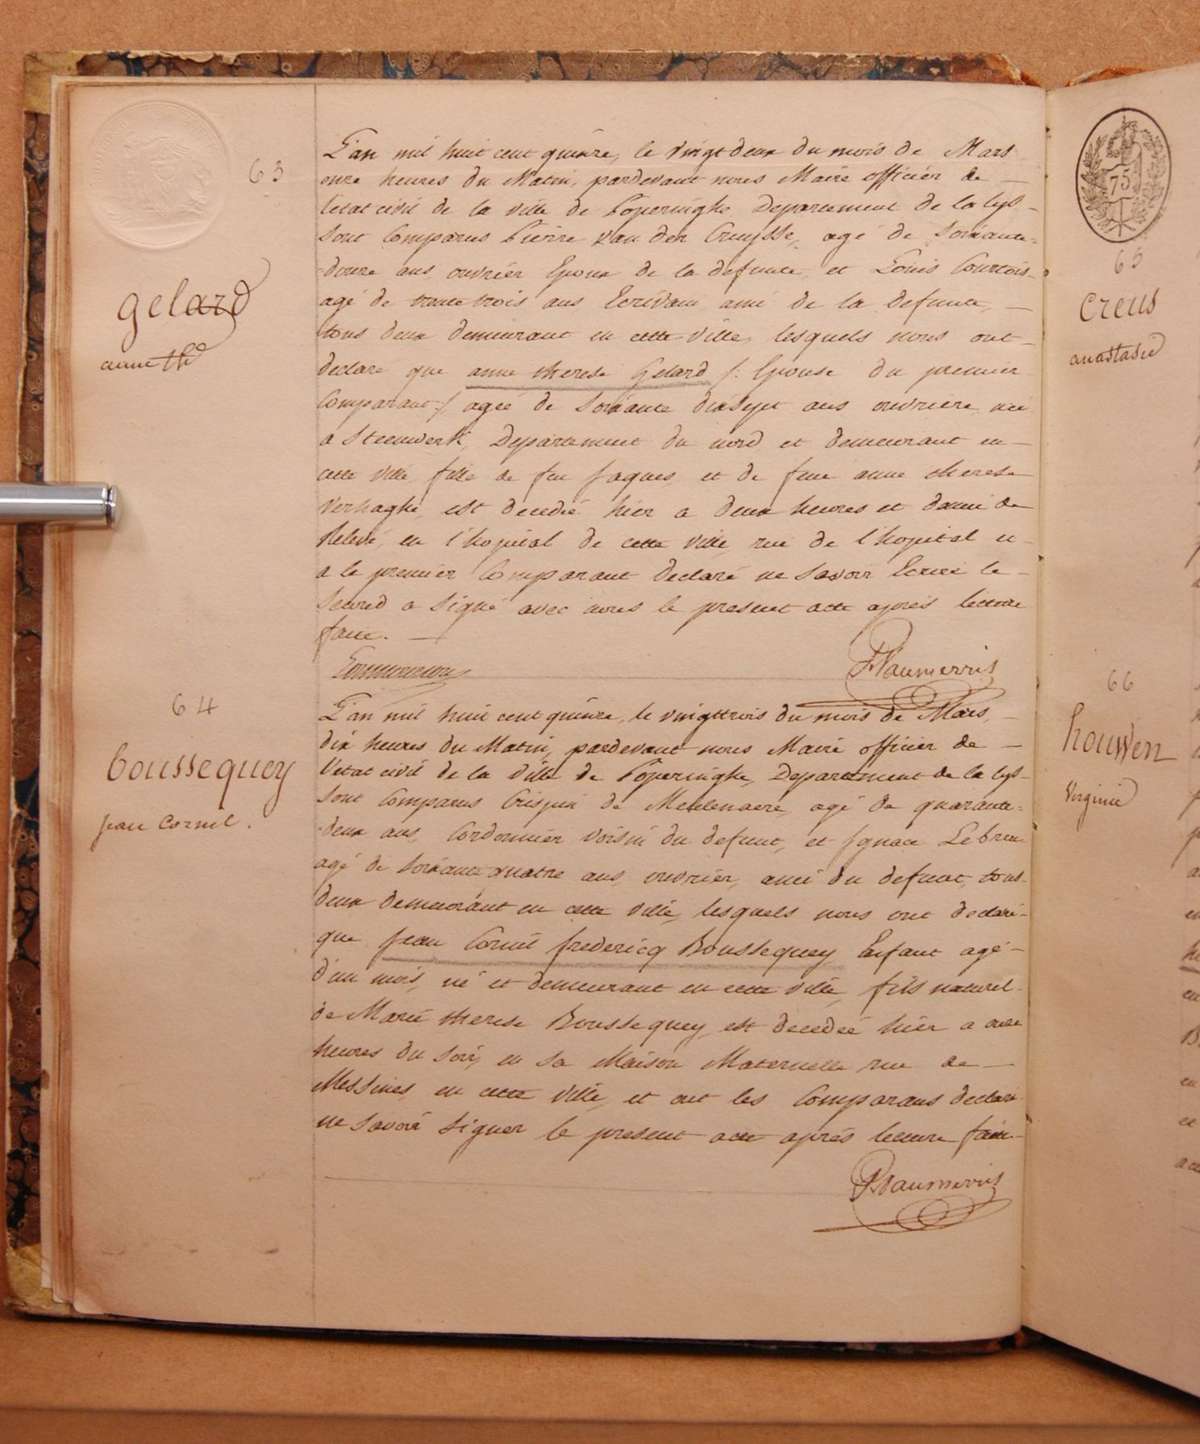 63
gelard
anne th
L'an mil huit cent quinze, le vingt deux du mois de Mars
onze heures du Matin, pardevant nous Maire officier de
letat civil de la ville de Poperinghe Departement de la Lys
sont Comparus Pierre van den Cruysse, agé de soixante
douze ans ouvrier Epoux de la defunte, et Louis Courtois
agé de trente trois ans Ecrivain ami de la defunte,
tous deux demeurant en cette ville, lesquels nous ont
declaré que anne therese Gelard /: Epouse du premier
Comparant :/ agée de soixante dixsept ans ouvrière née
a Steenwerk, Departement du nord et demeurant en
cette ville fille de feu Jaques, et de feue anne therese
Verhaghe, est decedée hier a deux heures et demi de
Relevé, en l'hopital de cette ville, rue de l'hopital et
a le premier Comparant declaré ne savoir Ecrire le
second a signé avec nous le present acte après lecture
faite.
64
Boussequey
Jean Cornil.
L'an mil huit cent quinze, le vingttrois du mois de Mars,
dix heures du Matin, pardevant nous Maire officier de
l'etat civil de la ville de Poperinghe, Departement de la Lys
sont Comparus Crispin de Meulenaere, agé de quarante
deux ans, Cordonnier voisin du defunt, et Ignace Lebrun
agé de soixante quatre ans, ouvrier, ami du defunt, tous
deux demeurant en cette ville, lesquels nous ont declaré
que Jean Cornil fredericq Boussequey Enfant agé
d'un mois, né et demeurant en cette ville, fils naturel
de Marie therese Boussequey, est decedée hier a onze
heures du soir, en sa Maison Maternelle rue de
Messines, en cette ville, et ont les Comparans declaré
ne savoir signer le present acte après lecture faite
75
65
Creus
anastasie
66
houwen
Virginie